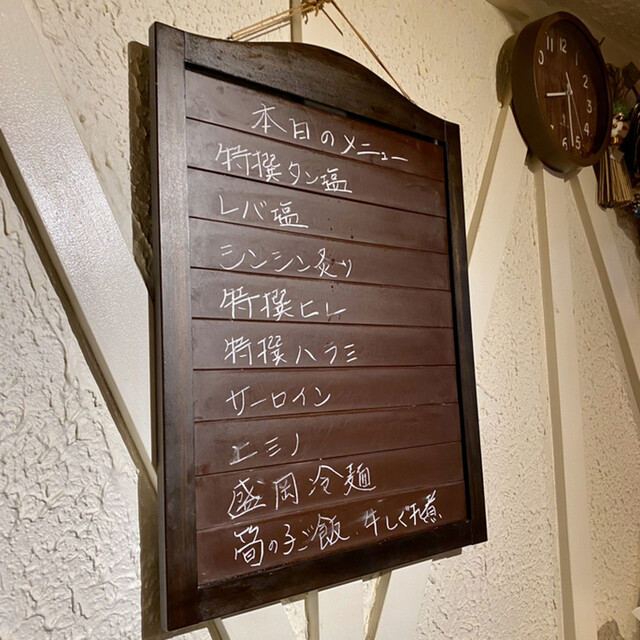 本日のメニュー
特撰タン塩
レバ塩
シンシン炙り
特撰ヒレ
特撰ハラミ
サーロイン
上ミノ
盛岡冷麺
筍の子ご飯 牛しぐれ煮